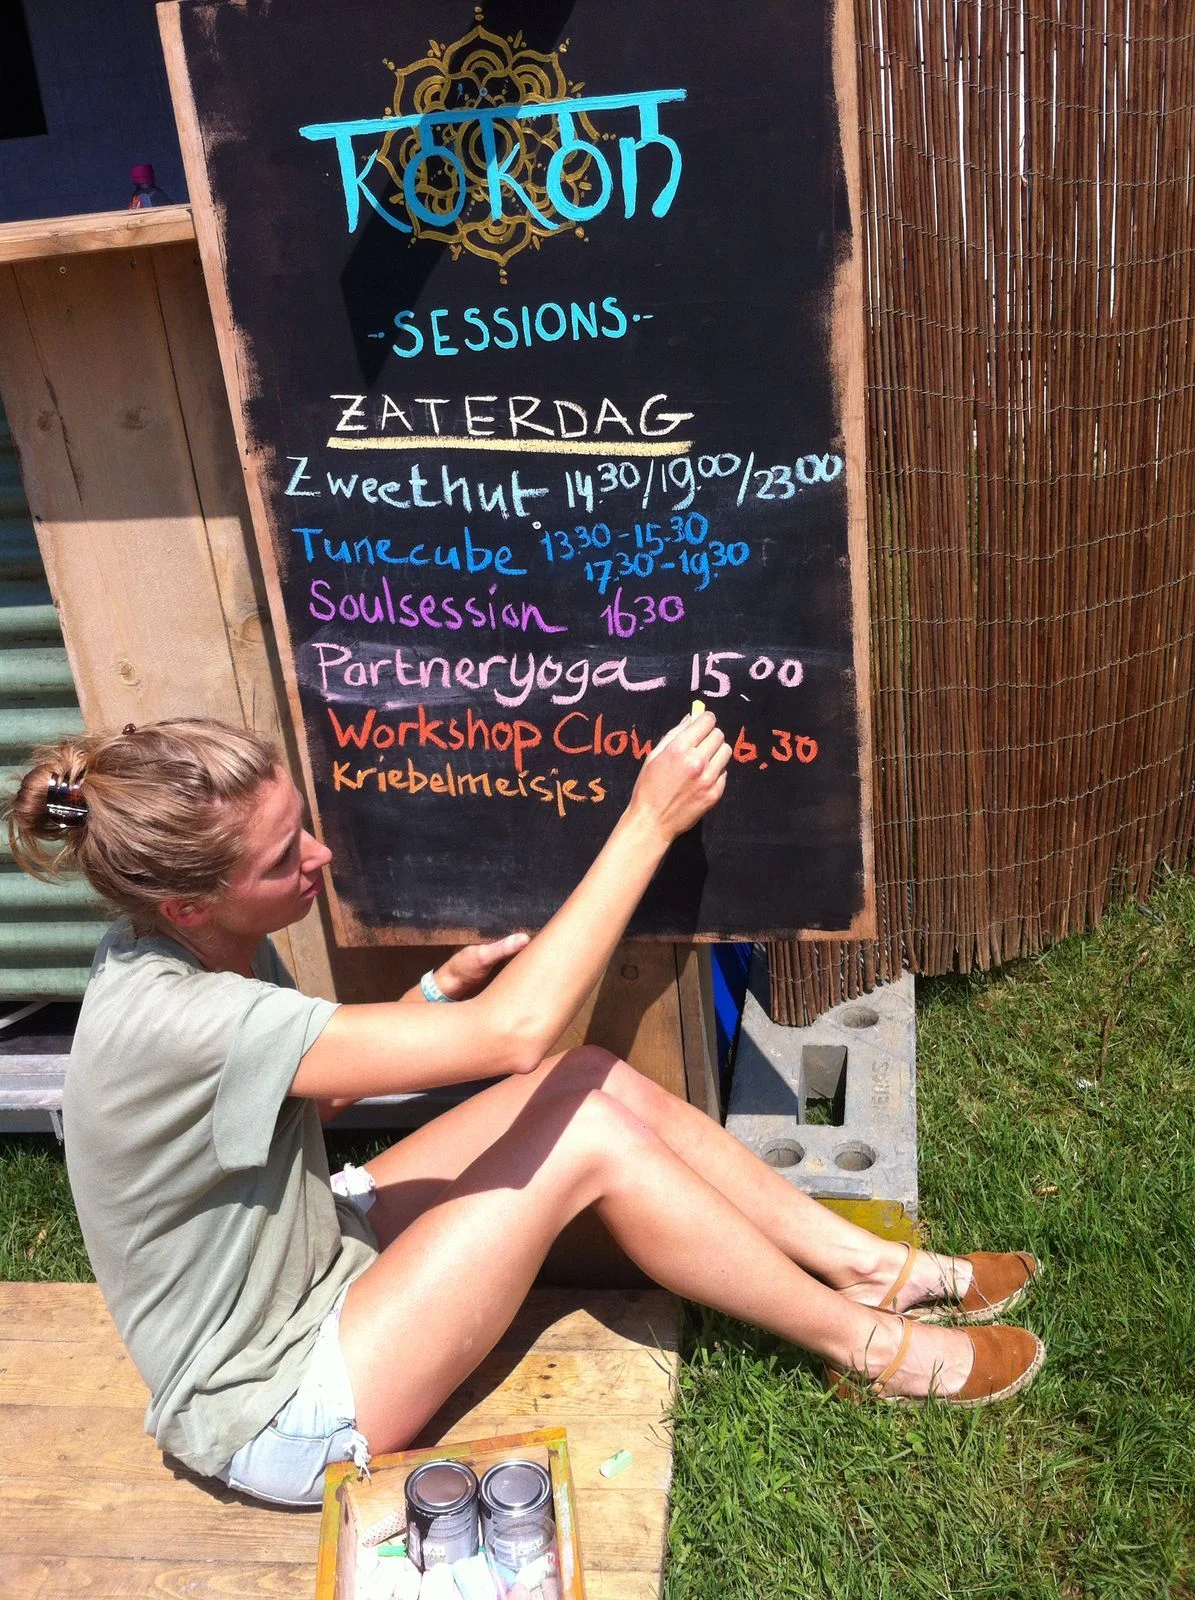 KOKON
-SESSIONS-
ZATERDAG
Zweethut 14.30/19.00/23.00
Tunecube 13.30-15.30
17.30-19.30
Soulsession 16.30
Partneryoga 15.00
Workshop 6.30
Kriebelmeisjes